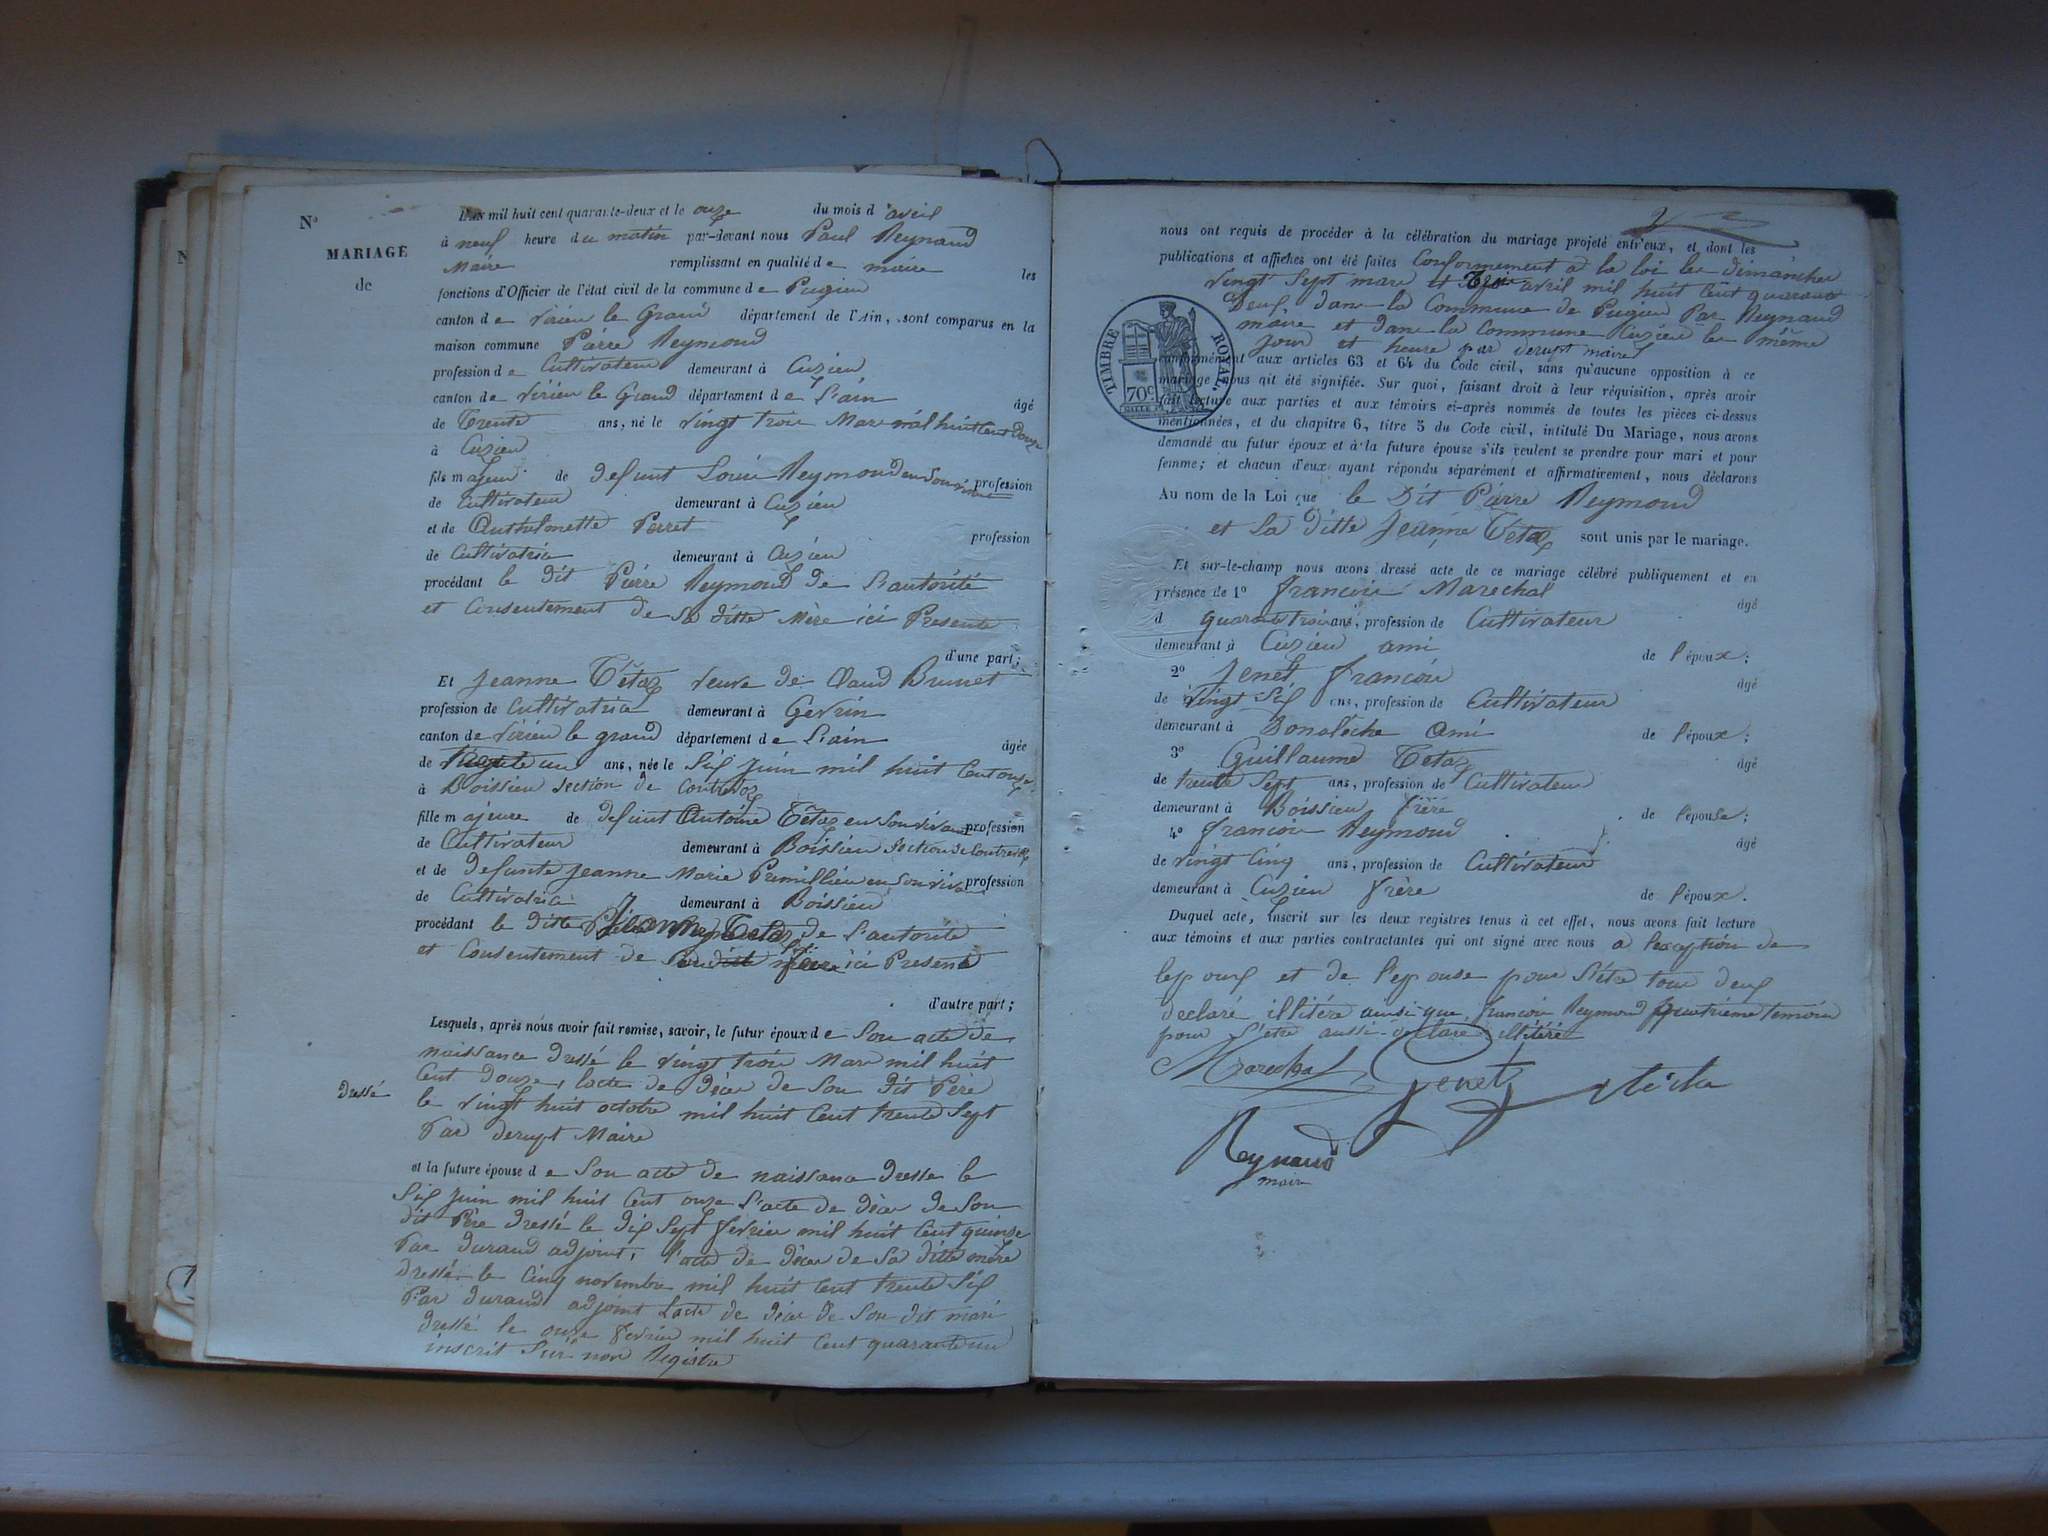 N°
MARIAGE
de
L'an mil huit cent quarante-deux et le onze du mois d'avril
à neuf heure du matin par-devant nous Paul Reynaud
Maire remplissant en qualité de maire les
fonctions d'Officier de l'état civil de la commune de Pugieu
canton de Virieu le Grand département de l'Ain, sont comparus en la
maison commune Pierre Reymond
profession de Cultivateur demeurant à Cuzieu
canton de Virieu le Grand département de L'ain âgé
de Trente ans, né le vingt trois Mars mil huit Cent Douze
à Cuzieu
fils majeur de defunt Louis Reymond en Son vivant profession
de Cultivateur demeurant à Cuzieu
et de Anthelmette Perret profession
de Cultivatrice demeurant à Cuzieu
procédant le dit Pierre Reymond de L'autorité
et Consentement de Sa ditte Mère ici Presente
d'une part;
Et Jeanne Tétaz veuve de Claud Brunet
profession de Cultivatrice demeurant à Gevrin
canton de Virieu le grand département de L'ain âgée
de Trente un ans, née le Six juin mil huit Cent onze
à Boissieu Section de Contrevoz
fille majeure de defunt Antoine Tétaz en Son vivant profession
de Cultivateur demeurant à Boissieu Section de Contrevoz
et de Defunte Jeanne Marie Premillieu en Son vivant profession
de Cultivatrice demeurant à Boissieu
procédant la ditte Jeanne Tetaz de L'autorité
et Consentement de Son frère ici Present
d'autre part;
Lesquels, après nous avoir fait remise, savoir, le futur époux de Son acte de
naissance Dressé le vingt trois Mars mil huit
Cent Douze, lacte de Décès de Son Dit Père
Dressé
le vingt huit octobre mil huit Cent trente Sept
Par Derupt Maire
et la future épouse de Son acte de naissance Dressé le
Six Juin mil huit Cent onze L'acte de Décès de Son
dit Père Dressé le Dix Sept fevrier mil huit Cent quinze
Par Durand adjoint, l'acte de Décès de Sa ditte mère
Dressé le Cinq novembre mil huit Cent trente Six
Par Durand adjoint Lacte de Décès de Son dit mari
Dressé le onze fevrier mil huit Cent quarante un
inscrit Sur nos Registre
2
nous ont requis de procéder à la célébration du mariage projeté entr'eux, et dont les
publications et affiches ont été faites Conformement à la loi les Dimanches
vingt Sept mars et Trois avril mil huit Cent quarante
Deux dans la Commune de Pugieu Par Reynaud
maire et dans la Commune Cuzieu les même
jour et heure par Derupt maire
conformément aux articles 63 et 64 du Code civil, sans qu'aucune opposition à ce
mariage nous ait été signifiée. Sur quoi, faisant droit à leur réquisition, après avoir
fait lecture aux parties et aux témoins ci-après nommés de toutes les pièces ci-dessus
mentionnées, et du chapitre 6, titre 5 du Code civil, intitulé Du Mariage, nous avons
demandé au futur époux et à la future épouse s'ils veulent se prendre pour mari et pour
femme; et chacun d'eux ayant répondu séparément et affirmativement, nous déclarons
TIMBRE ROYAL
70c
Au nom de la Loi que le Dit Pierre Reymond
et la Ditte Jeanne Tétaz sont unis par le mariage.
Et sur-le-champ nous avons dressé acte de ce mariage célébré publiquement et en
présence de 1° François Marechal âgé
d quarante trois ans, profession de Cultivateur
demeurant à Cuzieu ami de l'époux;
2° Jenet François âgé
de vingt Six ans, profession de Cultivateur
demeurant à Bonalèche Ami de l'époux;
3° Guillaume Tetaz âgé
de trente Sept ans, profession de Cultivateur
demeurant à Boissieu frère de l'épouse;
4° François Reymond âgé
de vingt Cinq ans, profession de Cultivateur
demeurant à Cuzieu frère de l'époux.
Duquel acte, inscrit sur les deux registres tenus à cet effet, nous avons fait lecture
aux témoins et aux parties contractantes qui ont signé avec nous à l'exception de
lepoux et de l'epouse pour S'être tous deux
declaré illitére ainsi que François Reymond quatrième temoin
pour S'etre aussi declaré illitéré
Marechal Genet
Reynaud
maire